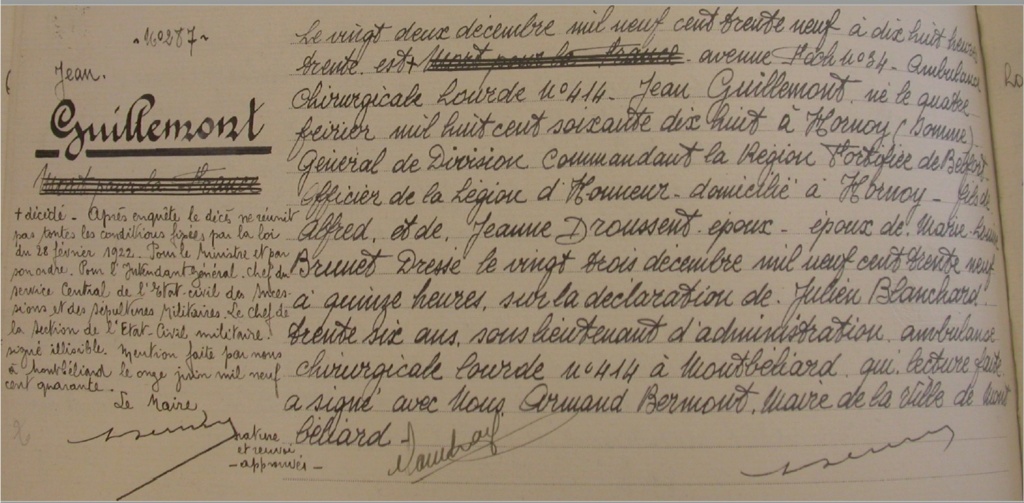 N° 287
Jean.
Guillemont
Mort pour la France
+ décédé - Après enquête le décès ne réunit
pas toutes les conditions fixées par la loi
du 28 février 1922 - Pour le Ministre et par
son ordre. Pour l'Intendant Général. chef du
service Central de l'Etat-civil des Succes-
sions et des sépultures Militaires. Le chef de
la section de l'Etat Civil militaire.
signé illisible. Mention faite par nous
à Montbéliard le onze juin mil neuf
cent quarante.
Le Maire
nature
et renvoi
- approuvés -
Le vingt deux décembre mil neuf cent trente neuf à dix huit heures
trente est + Mort pour la France avenue Foch n° 34 - Ambulance
Chirurgicale Lourde N° 414 - Jean Guillemont né le quatre
février mil huit cent soixante dix huit à Hornoy (Somme)
Général de Division Commandant la Région Fortifiée de Belfort
Officier de la Légion d'Honneur - domicilié à Hornoy - fils de
Alfred. et de. Jeanne Droussent époux - époux de Marie
Brunet Dressé le vingt trois décembre mil neuf cent trente neuf
à quinze heures. sur la déclaration de. Julien Blanchard.
trente six ans, sous lieutenant d'administration. ambulance
chirurgicale lourde n° 414 à Montbéliard. qui, lecture faite
a signé avec Nous. Armand Bermont, Maire de la Ville de Mont
béliard -